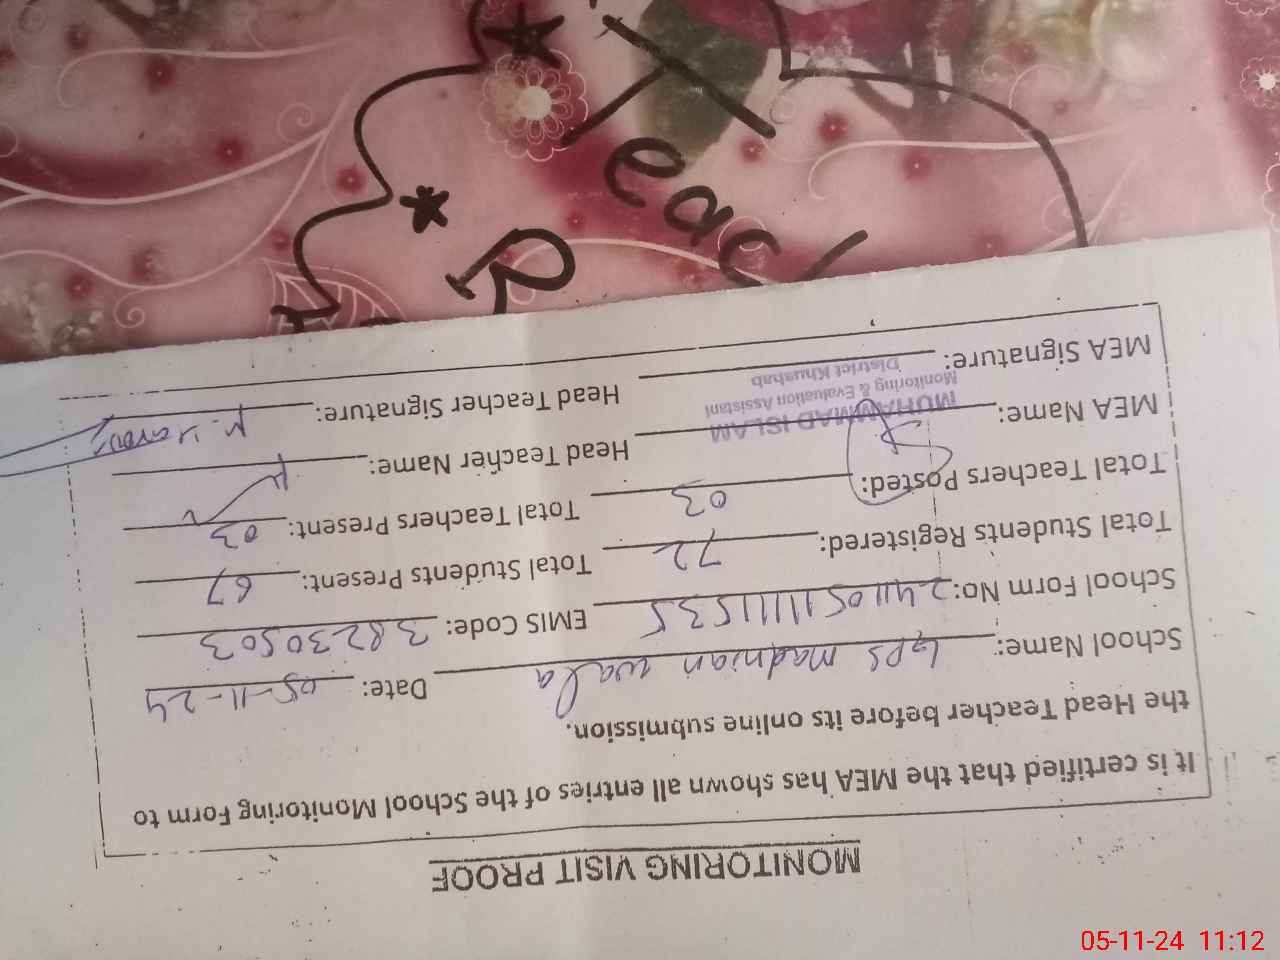 MONITORING VISIT PROOF
It is certified that the MEA has shown all entries of the School Monitoring Form to
the Head Teacher before its online submission.
School Name: GPS madnian wala Date: 05-11-24
School Form No: 241105111111535 EMIS Code: 38230503
Total Students Registered: 72 Total Students Present: 67
Total Teachers Posted: 03 Total Teachers Present: 03
MEA Name: MUHAMMAD ISLAM Head Teacher Name:
Monitoring & Evaluation Assistant
District Khushab
MEA Signature: Head Teacher Signature:
05-11-24 11:12